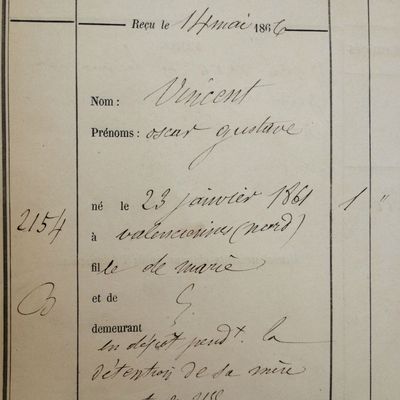 Reçu le 14 mai 1866
Nom : Vincent
Prénoms : oscar gustave
né le 23 janvier 1861
1 "
2154
à valenciennes (nord)
fils de marie
et de
demeurant
en dépôt pendt. la
détention de sa mère